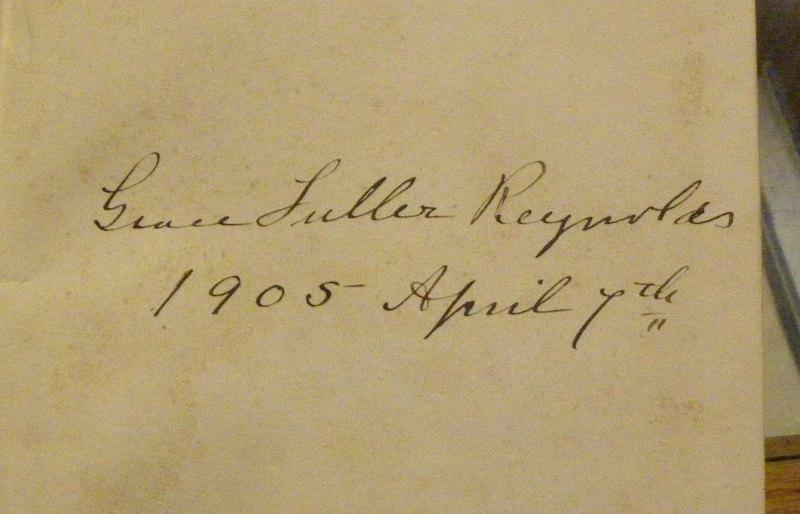 Grace Fuller Reynolds
1905 April 7th